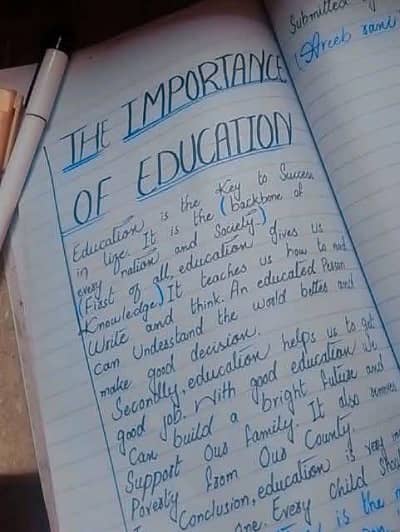 Submitted
(Areeb rani
THE IMPORTANCE
OF EDUCATION
Education is the Key to Success
in life. It is the (backbone of
every nation and Society.)
(First of all, education gives us
Knowledge.) It teaches us how to read
Write and think. An educated Person
Can Understand the world better and
make good decision.
Secondly, education helps us to get
good job. With good education We
Can build a bright future and
Support Our family. It also removes
Poverty from Our County.
Conclusion, education is very
one. Every child
is the